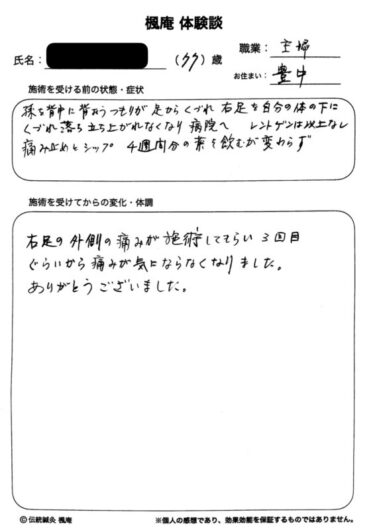 楓庵 体験談
氏名： （77）歳 職業： 主婦
お住まい： 豊中
施術を受ける前の状態・症状
孫を背中に背おうつもりが 足からくづれ 右足を自分の体の下に
くづれ落ち立ち上がれなくなり 病院へ レントゲンは以上なし
痛み止めとシップ 4週間分の薬を飲むが変わらず
施術を受けてからの変化・体調
右足の外側の痛みが施術してもらい 3回目
ぐらいから痛みが気にならなくなりました。
ありがとうございました。
© 伝統鍼灸 楓庵 ※個人の感想であり、効果効能を保証するものではありません。